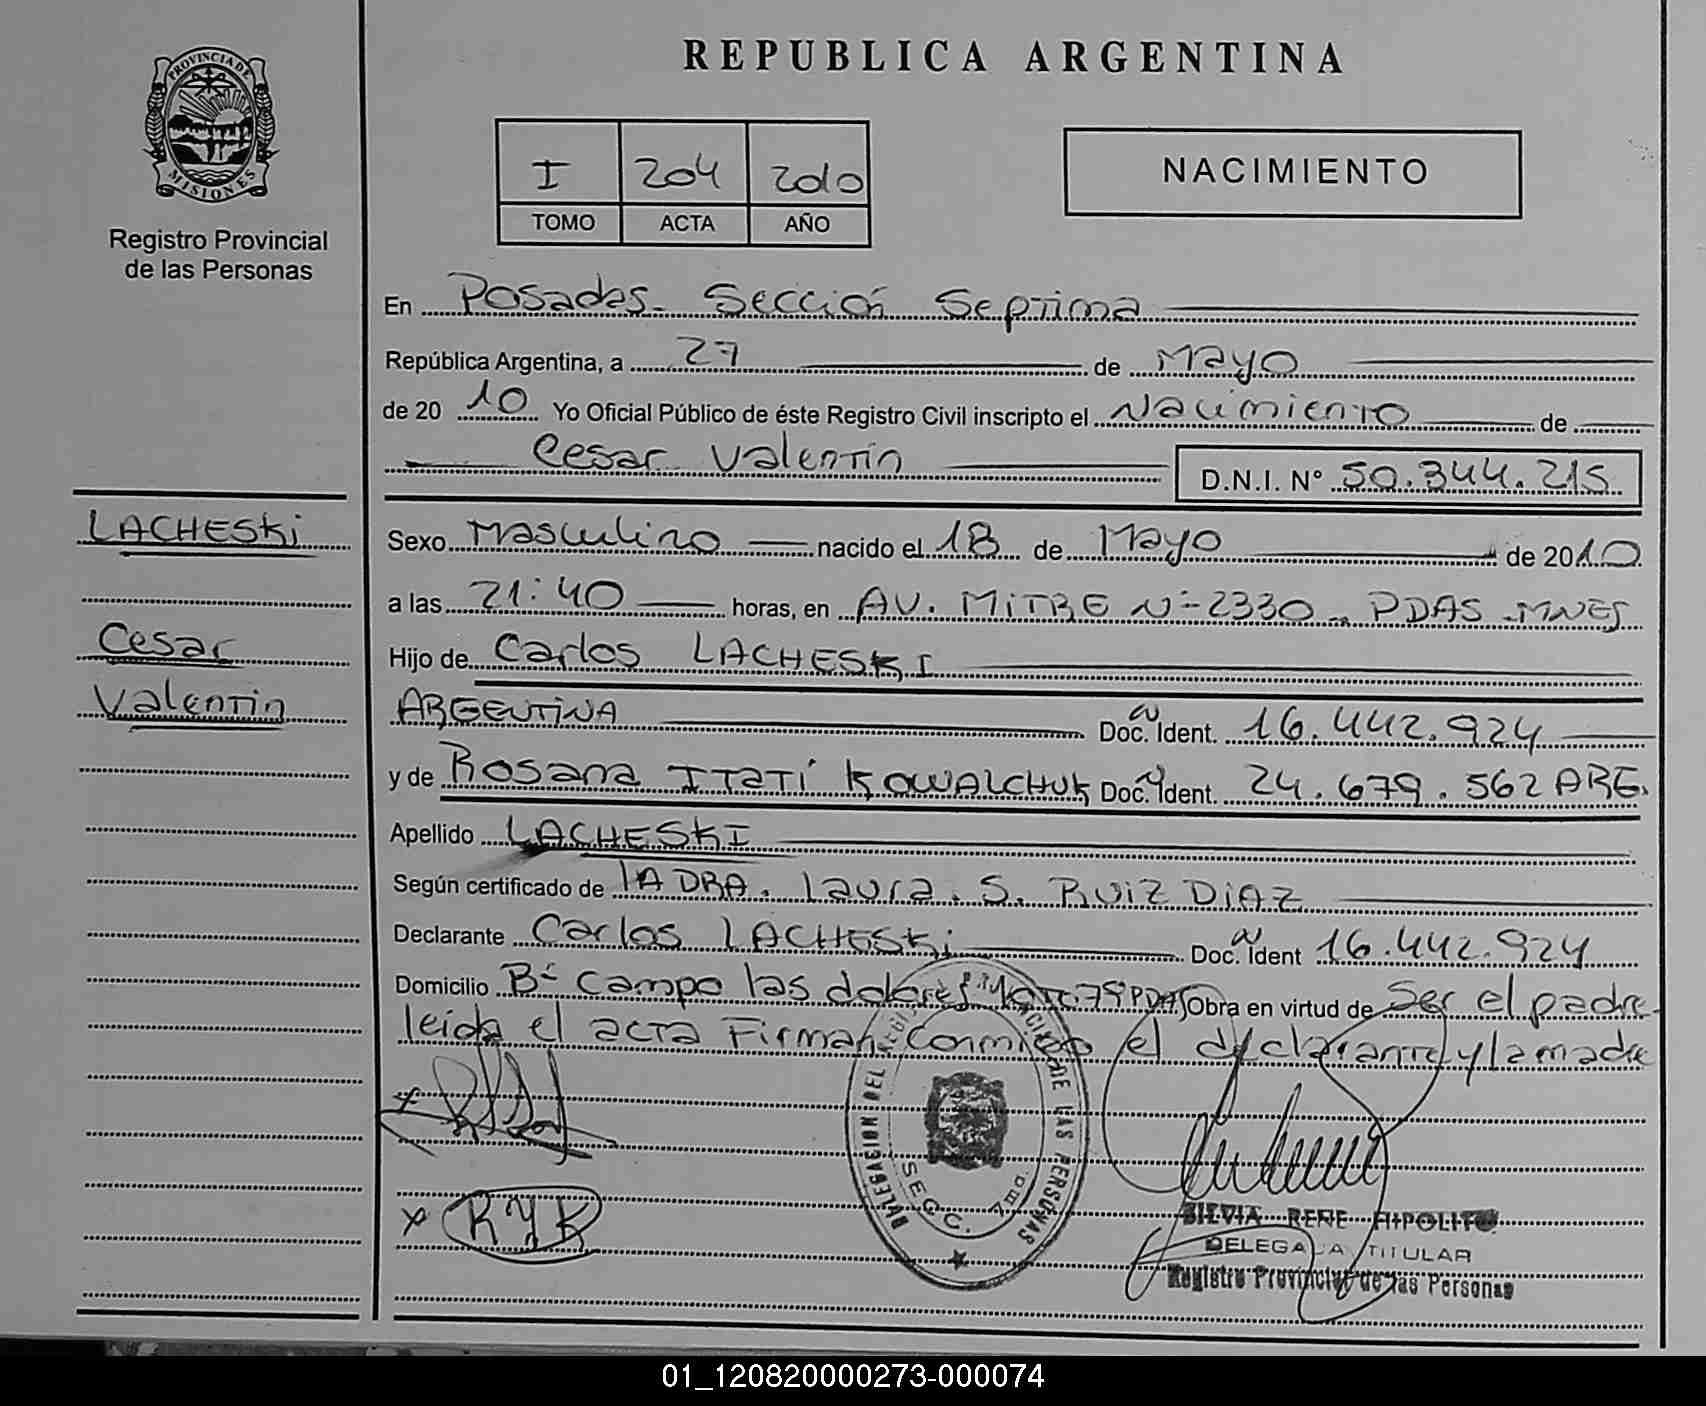 REPUBLICA ARGENTINA
PROVINCIA DE
MISIONES
Registro Provincial
de las Personas
I 204 2010
TOMO ACTA AÑO
NACIMIENTO
En Posadas- Sección Septima
República Argentina, a 27 de Mayo
de 20 10 Yo Oficial Público de éste Registro Civil inscripto el Nacimiento de
Cesar Valentín
D.N.I. N° 50.344.215
LACHESKi
Cesar
Valentin
Sexo Masculino nacido el 18 de Mayo de 2010
a las 21:40 horas, en AV. MiTRE N-2330 PDAS MNES
Hijo de Carlos LACHESKI
ARGENTINA Doc. Ident. 16.442.924
y de Rosana ITATÍ KOWALCHUK Doc. Ident. 24.679.562 ARG.
Apellido LACHESKI
Según certificado de lA DRA. Laura. S. RUiZ DiAZ
Declarante Carlos LACHESKi Doc. Ident 16.442.924
Domicilio B- Campo las dolores PDAS Obra en virtud de Ser el padre
leida el acta Firman Conmigo el declarante y la madre
x
x RYK
DELEGACION DEL DE LAS PERSONAS
SECC. 7ma.
SILVIA RENE HIPOLITO
DELEGADA TITULAR
Registro Provincial de las Personas
01_120820000273-000074